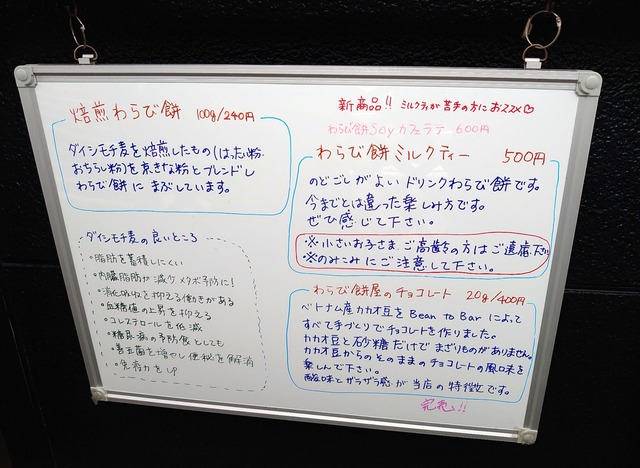 焙煎わらび餅 100g/240円
ダイシモチ麦を焙煎したもの(はったい粉・
おちらし粉)を京きな粉とブレンドし
わらび餅に まぶしています。
ダイシモチ麦の良いところ
・脂肪を蓄積しにくい
・内臓脂肪が減少メタボ予防に!
・消化吸収を抑える働きがある
・血糖値の上昇を抑える
・コレステロールを低減
・糖尿病の予防食としても
・善玉菌を増やし便秘を解消
・免疫力をUP
新商品!! ミルクティが苦手の方におススメ♡
わらび餅Soyカフェラテ 600円
わらび餅ミルクティー 500円
のどごしがよいドリンクわらび餅です。
今までとは違った楽しみ方です。
ぜひ感じて下さい。
※小さいお子さま ご高齢の方はご遠慮下さい
※のみこみにご注意して下さい。
わらび餅屋のチョコレート 20g/400円
ベトナム産カカオ豆を Bean to Bar によって
すべて手づくりでチョコレートを作りました。
カカオ豆と砂糖だけでまざりものがありません。
カカオ豆からのそのままのチョコレートの風味を
楽しんで下さい。
酸味とザラザラ感が当店の特徴です。
完売!!